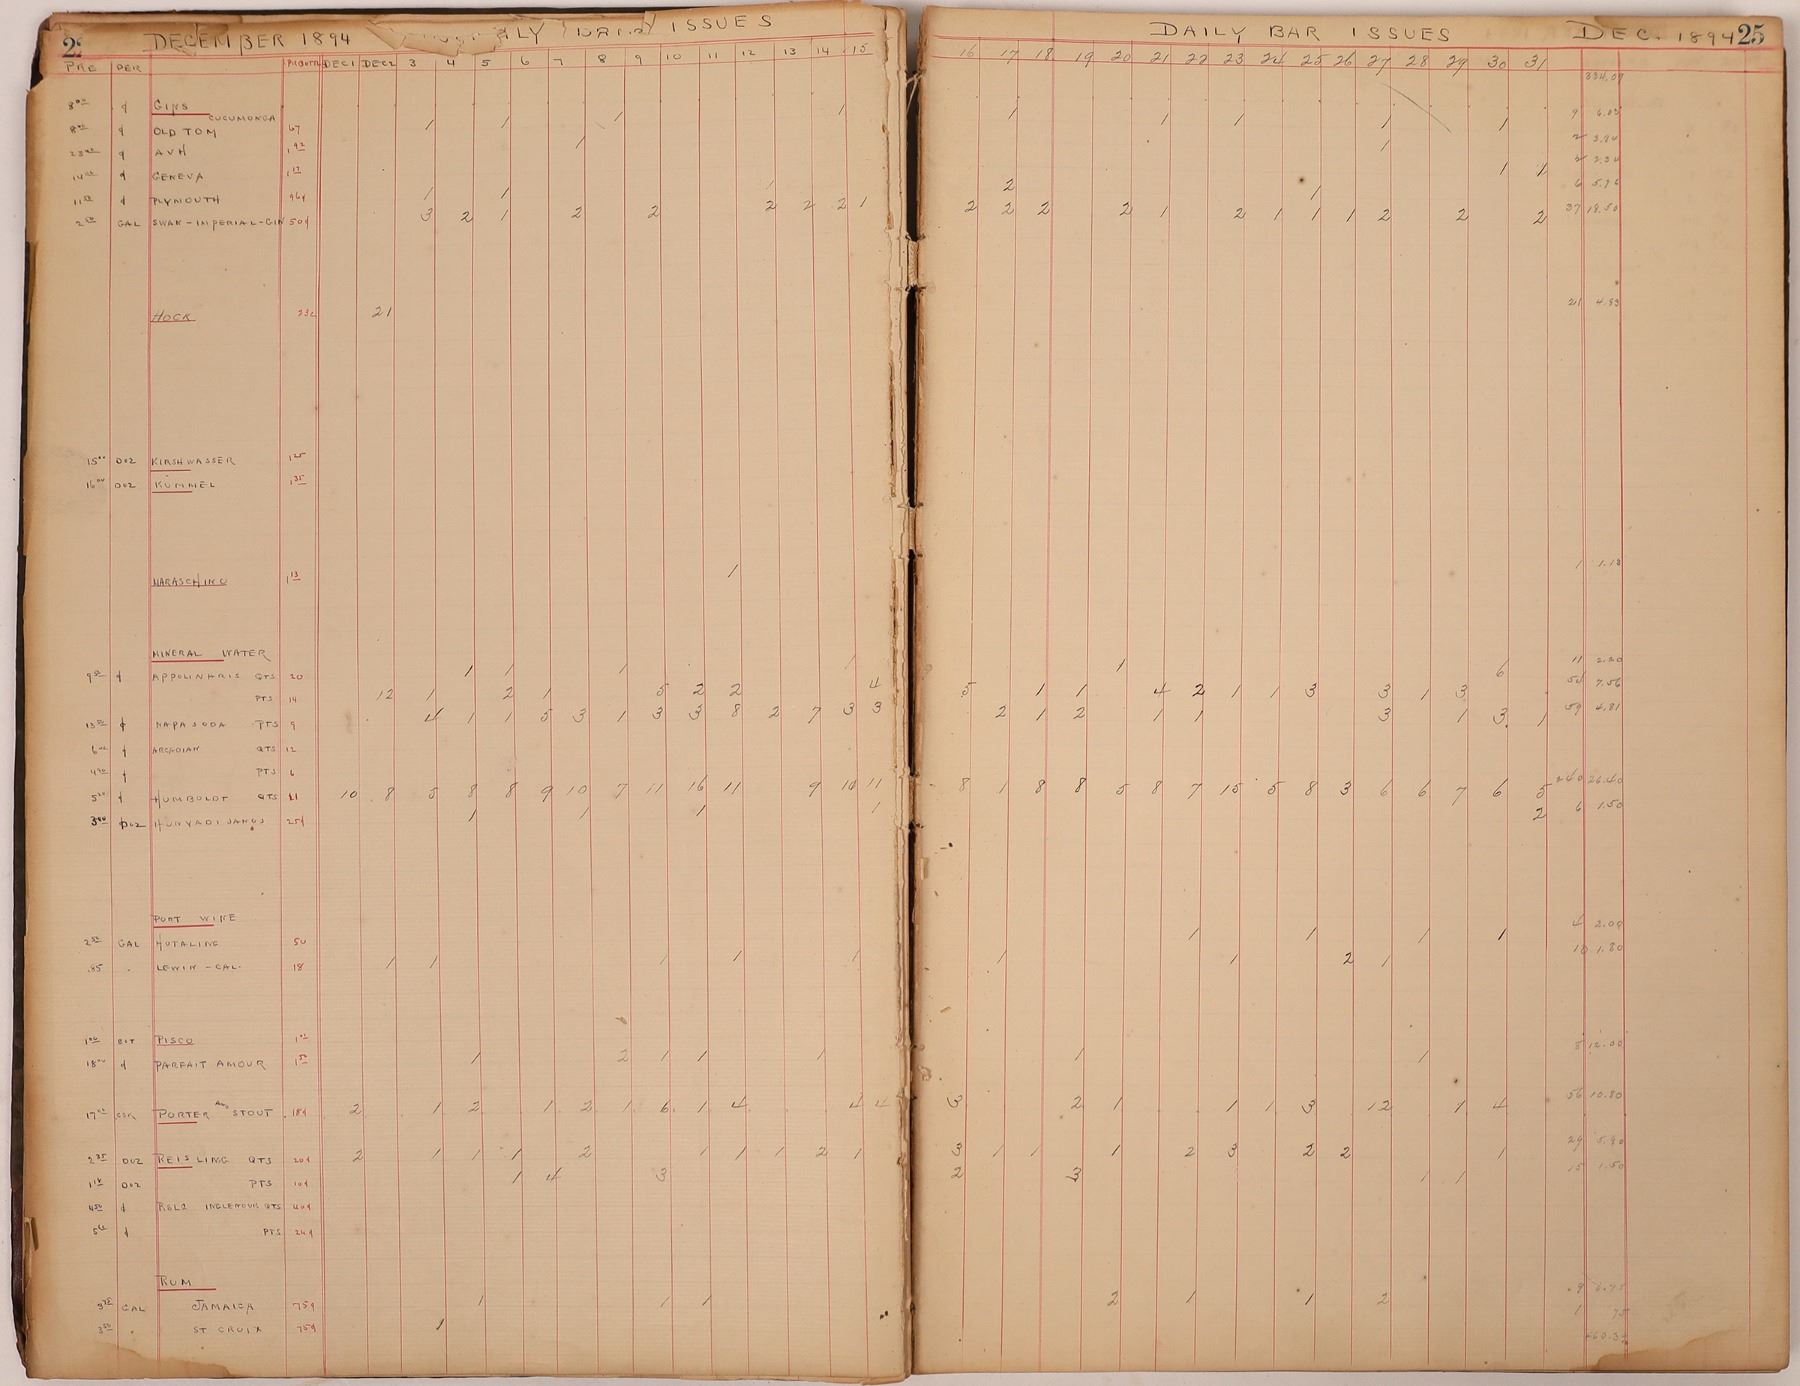 DECEMBER 1894 ISSUES
DAILY BAR ISSUES DEC. 1894 25
PRE PER DEC1 DEC2 3 4 5 6 7 8 9 10 11 12 13 14 15
16 17 18 19 20 21 22 23 24 25 26 27 28 29 30 31
334.09
GINS
CUCUMONGA 1 1 1 1 1 1 1 1 1 9 6.03
OLD TOM 67 1 1 2 3.94
AVH 1 92 1 1 2 2.34
GENEVA 1 17 1 2 1 6 5.76
PLYMOUTH 96¢ 1 1
2 50 GAL SWAN-IMPERIAL-GIN 50¢ 3 2 1 2 2 2 2 2 1 2 2 2 2 1 2 1 1 1 2 2 2 37 18.50
HOCK 23c 21 21 4.83
15 00 DOZ KIRSHWASSER 1 25
16 00 DOZ KÜMMEL 1 35
MARASCHINO 1 13 1 1 1.13
MINERAL WATER
APPOLINARIS QTS 20 1 1 1 1 1 6 11 2.20
PTS 14 12 1 2 1 5 2 2 4 5 1 1 4 2 1 1 3 3 1 3 54 7.56
NAPA SODA PTS 9 4 1 1 5 3 1 3 3 8 2 7 3 3 2 1 2 1 1 3 1 3 1 59 4.81
ARCADIAN QTS 12
PTS 6
HUMBOLDT QTS 11 10 8 5 8 8 9 10 7 11 16 11 9 10 11 8 1 8 8 5 8 7 15 5 8 3 6 6 7 6 5 240 26.40
DOZ HUNYADI JANOS 25¢ 1 1 1 1 2 6 1.50
PORT WINE
2 50 GAL HOTALING 50 1 1 1 1 4 2.00
.85 LEWIN-CAL- 18 1 1 1 1 1 1 1 2 1 10 1.80
1 00 BOT PISCO 1 00
18 00 PARFAIT AMOUR 1 50 1 2 1 1 1 1 1 8 12.00
17 CSK PORTER AND STOUT 18¢ 2 1 2 1 2 1 6 1 4 4 4 3 2 1 1 1 3 12 1 4 56 10.80
2 35 DOZ REISLING QTS 20¢ 2 1 1 1 2 1 1 1 2 1 3 1 1 1 2 3 2 2 1 29 5.90
DOZ PTS 10¢ 1 4 3 2 3 1 1 15 1.50
INGLENOUK QTS 40¢
PTS 24¢
RUM
GAL JAMAICA 75¢ 1 1 1 2 1 1 2 9 6.75
3 50 ST CROIX 75¢ 1 1 75